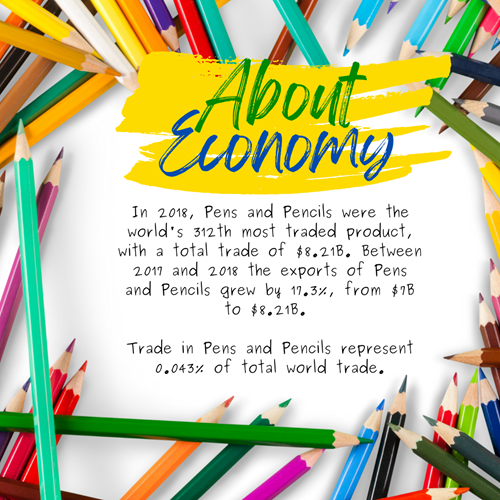 About
Economy
In 2018, Pens and Pencils were the
world's 312th most traded product,
with a total trade of $8.21B. Between
2017 and 2018 the exports of Pens
and Pencils grew by 17.3%, from $7B
to $8.21B.
Trade in Pens and Pencils represent
0.043% of total world trade.